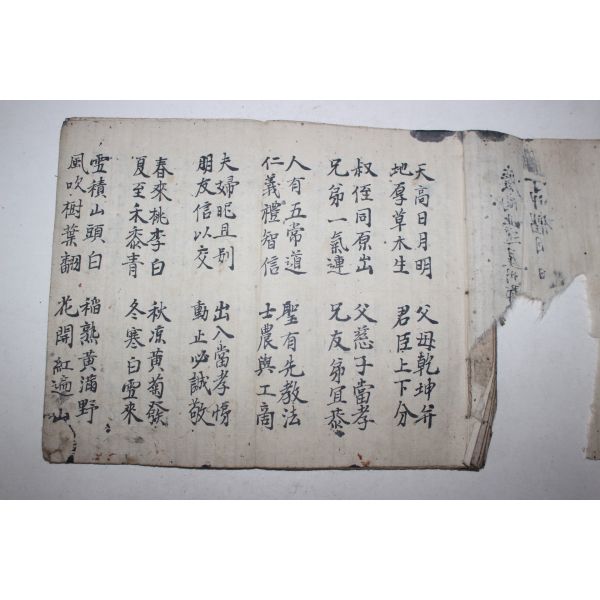 天高日月明
地厚草木生
父母乾坤弁
君臣上下分
叔侄同原出
兄弟一氣連
父慈子當孝
兄友弟宜恭
人有五常道
仁義禮智信
聖有先教法
士農與工商
夫婦昵且別
朋友信以交
出入當孝悌
動止必誠敬
春來桃李白
夏至禾黍青
秋凉黃菊發
冬寒白雪來
雪積山頭白
風吹樹葉翻
稻熟黃滿野
花開紅遍山